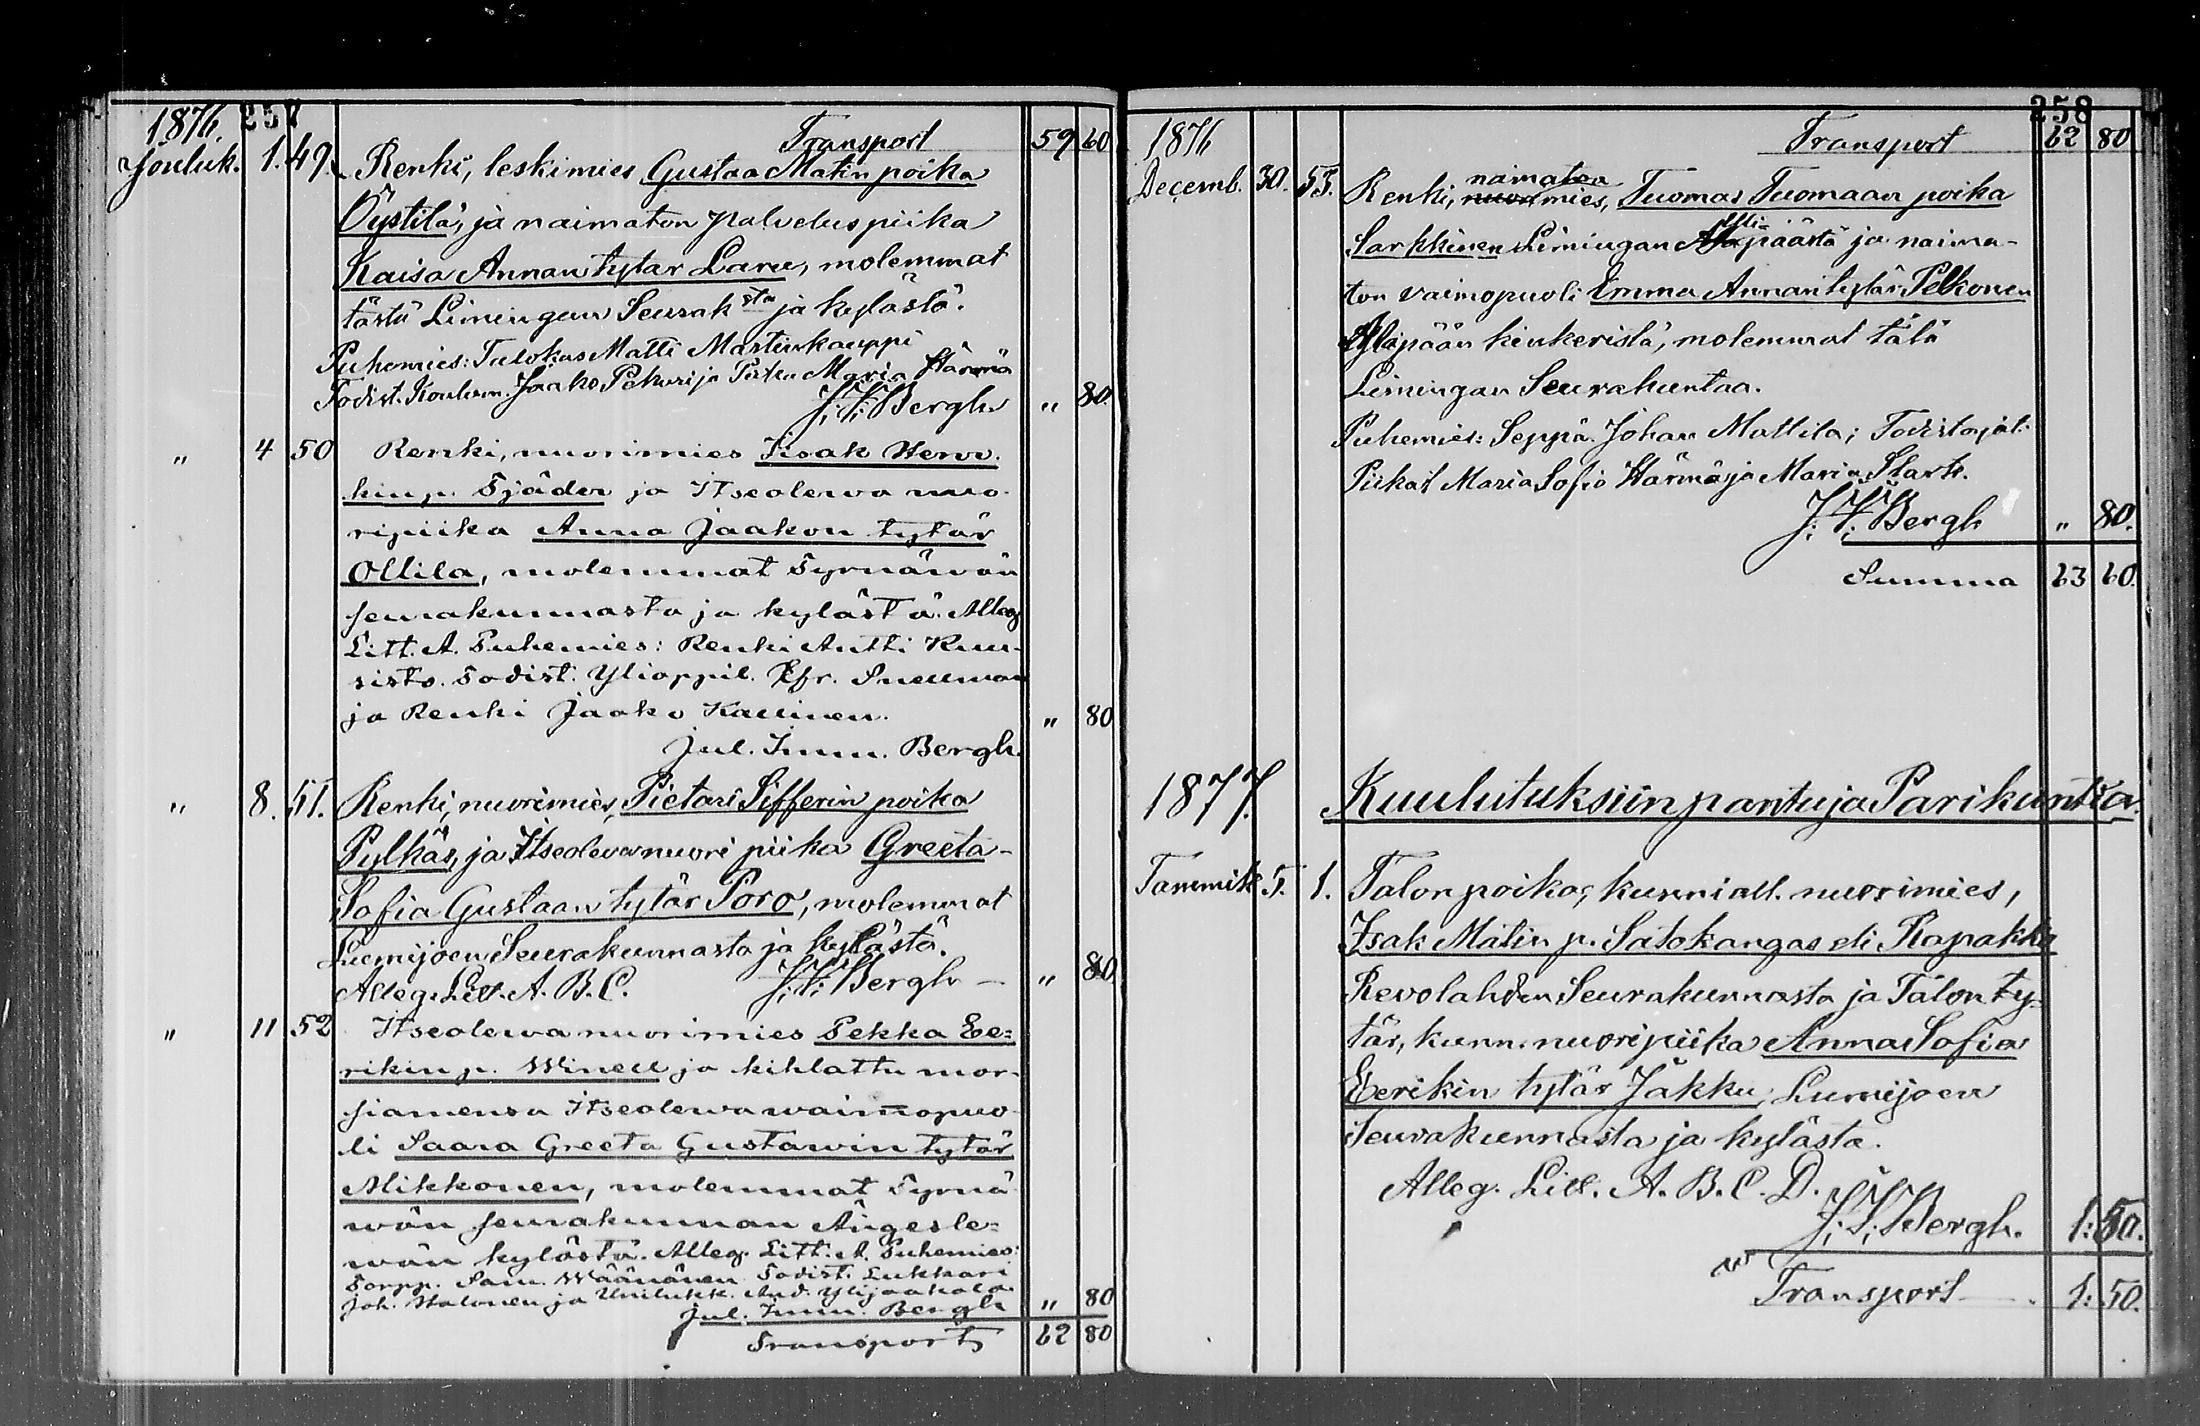 1876. 257
Transport 59 60
Jouluk. 1. 49. Renki, leskimies Gustaa Matin poika
Öystilä, ja naimaton palveluspiika
Kaisa Annan tytär Laru, molemmat
tästä Limingan Seurak sta ja kylästä.
Puhemies: Tulokas Matti Martinkauppi
Todist. Koulum. Jaako Pekuri ja Piika Maria Härmä
J. I. Bergh " 80.
" 4 50 Renki, nuorimies Iisak Hen-
kin p. Tjäder ja Itseolewa nuo-
ripiika Anna Jaakon tytär
Ollila, molemmat Tyrnäwän
seurakunnasta ja kylästä. Alleg
Litt. A. Puhemies: Renki Antti Kuu-
sisto. Todist. Ylioppil. Kfr. Snellman
ja Renki Jaako Kallinen. " 80
Jul. Imm. Bergh.
" 8. 51. Renki, nuorimies, Pietari Sifferin poika
Pylkäs, ja Itseoleva nuori piika Greeta-
Sofia Gustaan tytär Poro, molemmat
Lumijoen Seurakunnasta ja kylästä.
Alleg. Litt. A. B. C. J. I. Bergh - " 80
" 11 52 Itseolewa nuorimies Pekka Ee=
rikin p. Winell ja kihlattu mor-
siamensa Itseolewa waimopuo-
li Saara Greeta Gustawin tytär
Mikkonen, molemmat Tyrnä-
wän seurakunnan Ängesle=
wän kylästä. Alleg. Litt. A. Puhemies:
Torpp. Sam. Wäänänen Todist. Lukkari
Joh. Halonen ja Unilukk. And. Ylijaakola.
Jul. Imm. Bergh " 80
Transport 62 80
258
1876 Transport 62 80
Decemb. 30. 53. Renki, naimaton mies, Tuomas Tuomaan poika
Sarkkinen Limingan Ylipäästä ja naima-
ton vaimopuoli Emma Annan tytär Pelkonen
Alapään kinkeristä, molemmat tätä
Limingan Seurakuntaa.
Puhemies: Seppä Johan Mattila; Todistajat:
Piikat Maria Sofia Härmä ja Maria Stark.
J. I. Bergh " 80.
Summa 63 60.
1877. Kuulutuksiin pantuja Parikuntia.
Tammik 5. 1. Talonpoika, kunniall. nuorimies,
Isak Matin p. Salokangas eli Rapakko
Revolahden Seurakunnasta ja Talon ty-
tär, kunn. nuoripiika Anna Sofia
Eerikin tytär Jakku, Lumijoen
Seurakunnasta ja kylästa.
Alleg. Litt. A. B. C. D.
J. I. Bergh. 1: 50.
Transport 1: 50.